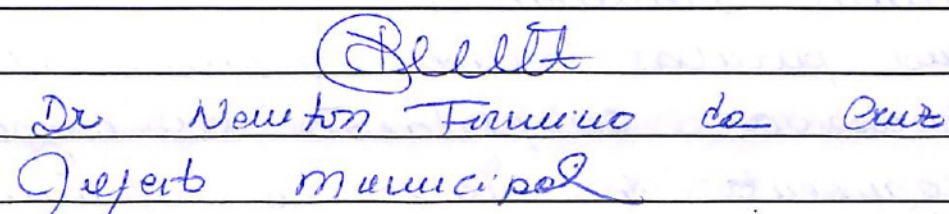 Dr Newton Firmino da Cruz
Prefeito Municipal